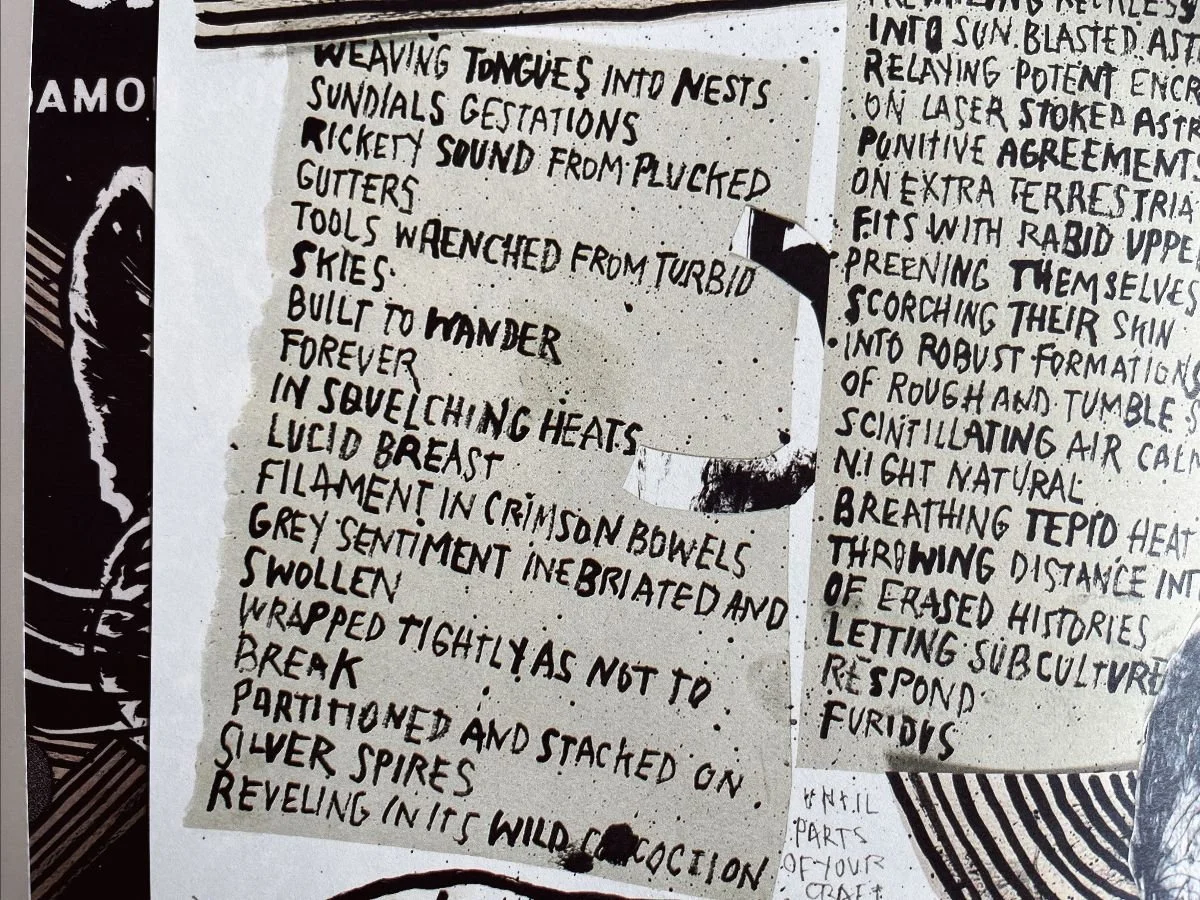 WEAVING TONGUES INTO NESTS
SUNDIALS GESTATIONS
RICKETY SOUND FROM PLUCKED
GUTTERS
TOOLS WRENCHED FROM TURBID
SKIES
BUILT TO WANDER
FOREVER
IN SQUELCHING HEATS
LUCID BREAST
FILAMENT IN CRIMSON BOWELS
GREY SENTIMENT INEBRIATED AND
SWOLLEN
WRAPPED TIGHTLY AS NOT TO
BREAK
PARTITIONED AND STACKED ON
SILVER SPIRES
REVELING IN ITS WILD
INTO SUN BLASTED
RELAYING POTENT
ON LASER STOKED
PUNITIVE AGREEMENTS
ON EXTRA
FITS WITH RABID
PREENING THEMSELVES
SCORCHING THEIR SKIN
INTO ROBUST FORMATIONS
OF ROUGH AND TUMBLE
SCINTILLATING AIR
NIGHT NATURAL
BREATHING TEPID HEAT
THROWING DISTANCE
OF ERASED HISTORIES
LETTING SUBCULTURE
RESPOND
FURIOUS
UNTIL
PARTS
OF YOUR